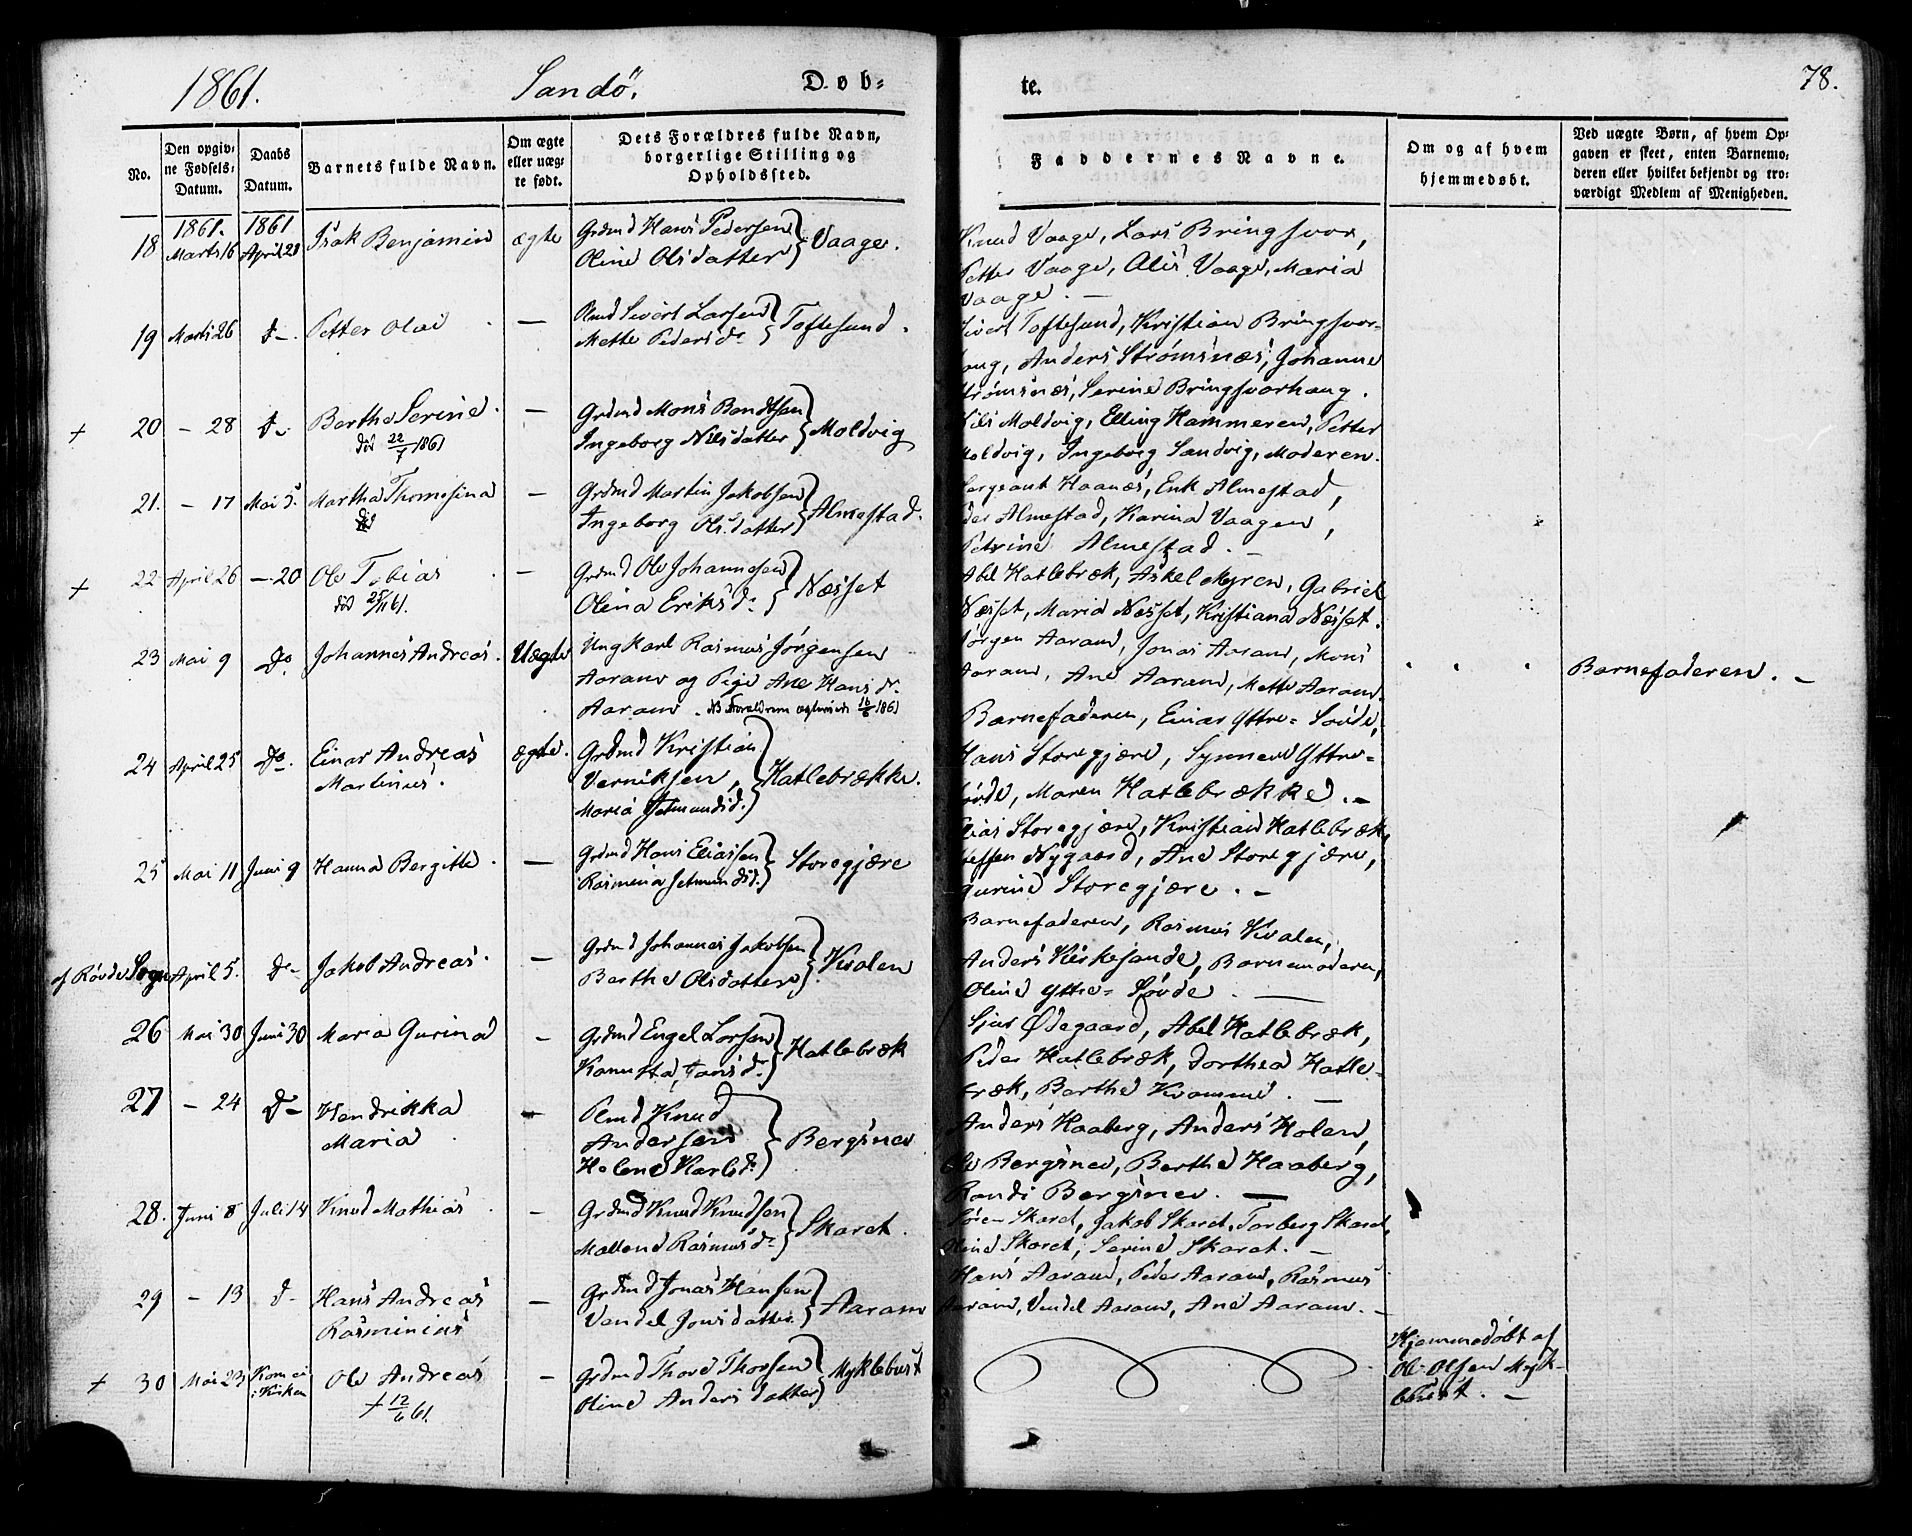 1861.
Sandö.
Døb=
te.
78.
No.
Den opgiv=
ne Fødsels=
Datum.
Daabs
Datum.
Barnets fulde Navn.
Om ægte
eller uæg=
te født.
Dets Forældres fulde Navn,
borgerlige Stilling og
Opholdssted.
Faddernes Navne.
Om og af hvem
hjemmedøbt.
Ved uægte Børn, af hvem Op=
gaven er skeet, enten Barnemo=
deren eller hvilket bekjendt og tro=
værdigt Medlem af Menigheden.
1861. 1861
18 Marts 16 April 28 Isak Benjamin ægte Grdmd Hans Pedersen
Oline Olsdatter } Vaage.
Knud Vaage, Lars Bringsvor,
Petter Vaage, Alis Vaage, Maria
Vaage. —
19 Marts 26 do. Petter Olai — Plmd Sivert Larsen
Mette Pedersdr } Toftesund.
Sivert Toftesund, Kristian Bringsvor-
haug, Anders Strømsnæs, Johanne
Strømsnæs, Serine Bringsvorhaug.
+ 20 — 28 do. Berthe Serine. — Grdmd Mons Bendtsen
død 22/7 1861
Ingeborg Nilsdatter } Moldvig
Nils Moldvig, Elling Hammeren, Petter
Moldvig, Ingeborg Sandvig, Moderen.
21. — 17 Mai 5. Martha Thomasina — Grdmd Martin Jakobsen
Ingeborg Olsdatter } Almestad.
Sergeant Haanæs, Erik Almestad,
Peder Almestad, Karina Vaagen,
Petrine Almestad. —
+ 22 April 26 — 20 Ole Tobias — Grdmd Ole Johannesen
død 25/11 61.
Olina Eriksdr } Næsset
Abel Hatlebræk, Askel Myren, Gabriel
Næsset, Maria Næsset, Kristiana Næsset.
23 Mai 9 Do Johannes Andreas. Uægte Ungkarl Rasmus Jørgensen
Aaram og Pige Ane Hansdr
Aaram. NB Forældrene ægteviede 16/6 1861
Jørgen Aaram, Jonas Aaram, Mons
Aaram, Ane Aaram, Mette Aaram.
Barnefaderen. —
24 April 25 Do. Einar Andreas ægte. Grdmd Kristian
Martinus.
Verniksen,
Maria Jetmundsd. } Hatlebrække.
Barnefaderen, Einar Yttre-Søvde,
Hans Storegjære, Synneve Yttre-
Søvde, Maren Hatlebrække. —
25 Mai 11 Juni 9 Hanna Bergitte. — Grdmd Hans Eliassen
Rasmina Jetmundsd. } Storegjære
Elias Storegjære, Kristian Hatlebræk,
Steffen Nygaard, Ane Storegjære,
Gurine Storegjære. —
af Røvde Sogn April 5. Do Jakob Andreas. — Grdmd Johannes Jakobsen
Berthe Olsdatter } Kvalen
Barnefaderen, Rasmus Kvalen,
Anders Kirkesande, Barnemoderen,
Oline Yttre-Søvde. —
26 Mai 30 Juni 30 Maria Gurina — Grdmd Engel Larsen
Hatlebræk
Sjur Ødegaard, Abel Hatlebræk,
Peder Hatlebræk, Dorthea Hatle-
bræk, Berthe Kvamme. —
27 — 24 Do Hendrikka — Plmd Knud
Maria.
Andersen
Helene Karlsdr } Bergsnev
Anders Haaberg, Anders Holen,
Ole Bergsnev, Berthe Haaberg,
Randi Bergsnev. —
28. Juni 8 Juli 14 Knud Mathias. — Grdmd Knud Knudsen
Mallene Rasmusdr } Skaret.
Søren Skaret, Jakob Skaret, Torberg Skaret,
Oline Skaret, Serine Skaret. —
29 — 13 do Hans Andreas — Grdmd Jonas Hansen
Rasminius
Vendel Jonsdatter } Aaram
Hans Aaram, Peder Aaram, Rasmus
Aaram, Vendel Aaram, Ane Aaram. —
+ 30 Mai 23 Kom ei
i Kirken
Ole Andreas — Grdmd Thore Thorsen
+ 12/6 61.
Oline Andersdatter } Myklebust
Hjemmedøbt af
Ole Olsen Myk-
lebust. —